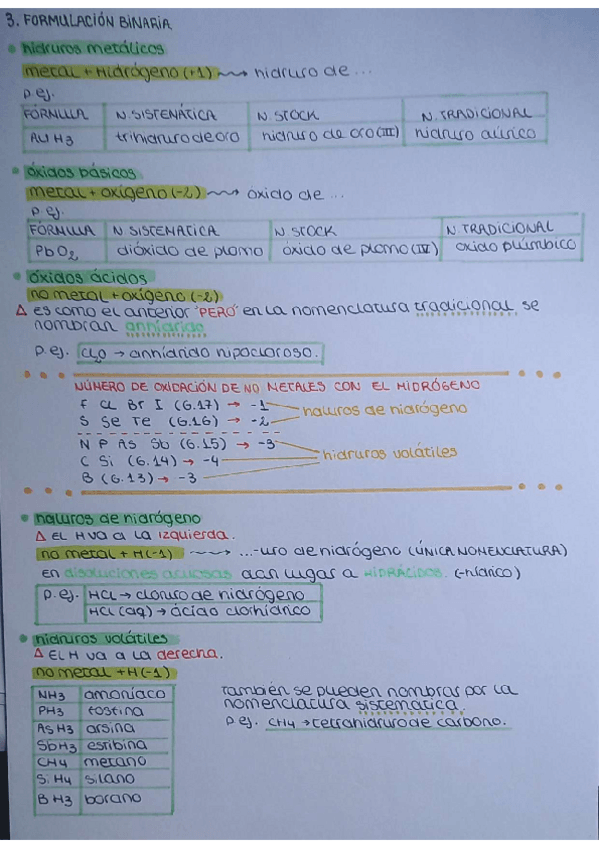 3. FORMULACIÓN BINARIA
hidruros metálicos
metal + Hidrógeno (+1) ⟿ hidruro de ...
p.ej.
FÓRMULA N. SISTEMÁTICA N. STOCK N. TRADICIONAL
AUH3 trihidruro de oro hidruro de oro (III) hidruro aúrico
óxidos básicos
metal + oxígeno (-2) ⟿ óxido de ...
p.ej.
FÓRMULA N. SISTEMATICA N. STOCK N. TRADICIONAL
PbO2 dióxido de plomo óxido de plomo (IV) oxido plúmbico
óxidos ácidos
no metal + oxígeno (-2)
Δ es como el anterior 'PERO' en la nomenclatura tradicional se
nombran anhídrido
p.ej. Cl2O → anhídrido hipocloroso.
NÚMERO DE OXIDACIÓN DE NO METALES CON EL HIDRÓGENO
F CL Br I (G.17) → -1
haluros de hidrógeno
S Se Te (G.16) → -2
N P AS Sb (G.15) → -3
C Si (G.14) → -4
hidruros volátiles
B (G.13) → -3
haluros de hidrógeno
Δ EL H va a la izquierda.
no metal + H(-1) ⟿ ...-uro de hidrógeno (ÚNICA NOMENCLATURA)
En disoluciones acuosas dan lugar a HIDRÁCIDOS. (-hídrico)
p.ej. HCL → cloruro de hidrógeno
HCL (aq) → ácido clorhídrico
hidruros volátiles
Δ EL H va a la derecha.
no metal + H(-1)
NH3 amoníaco
PH3 fosfina
AsH3 arsina
SbH3 estibina
CH4 metano
SiH4 silano
BH3 borano
también se pueden nombrar por la
nomenclatura sistemática.
p.ej. CH4 → tetrahidruro de carbono.